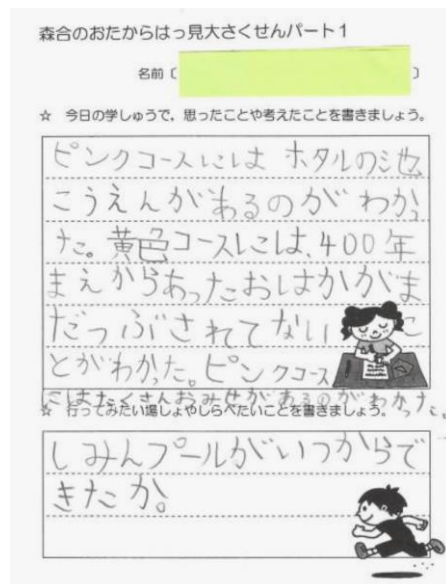 森合のおたからはっ見大さくせんパート1
名前〔 〕
☆ 今日の学しゅうで、思ったことや考えたことを書きましょう。
ピンクコースにはホタルの池
こうえんがあるのがわかっ
た。黄色コースには、400年
まえからあったおはかがま
だつぶされてないこ
とがわかった。ピンクコース
にはたくさんおみせがあるのがわかった。
☆ 行ってみたい場しょやしらべたいことを書きましょう。
しみんプールがいつからで
きたか。